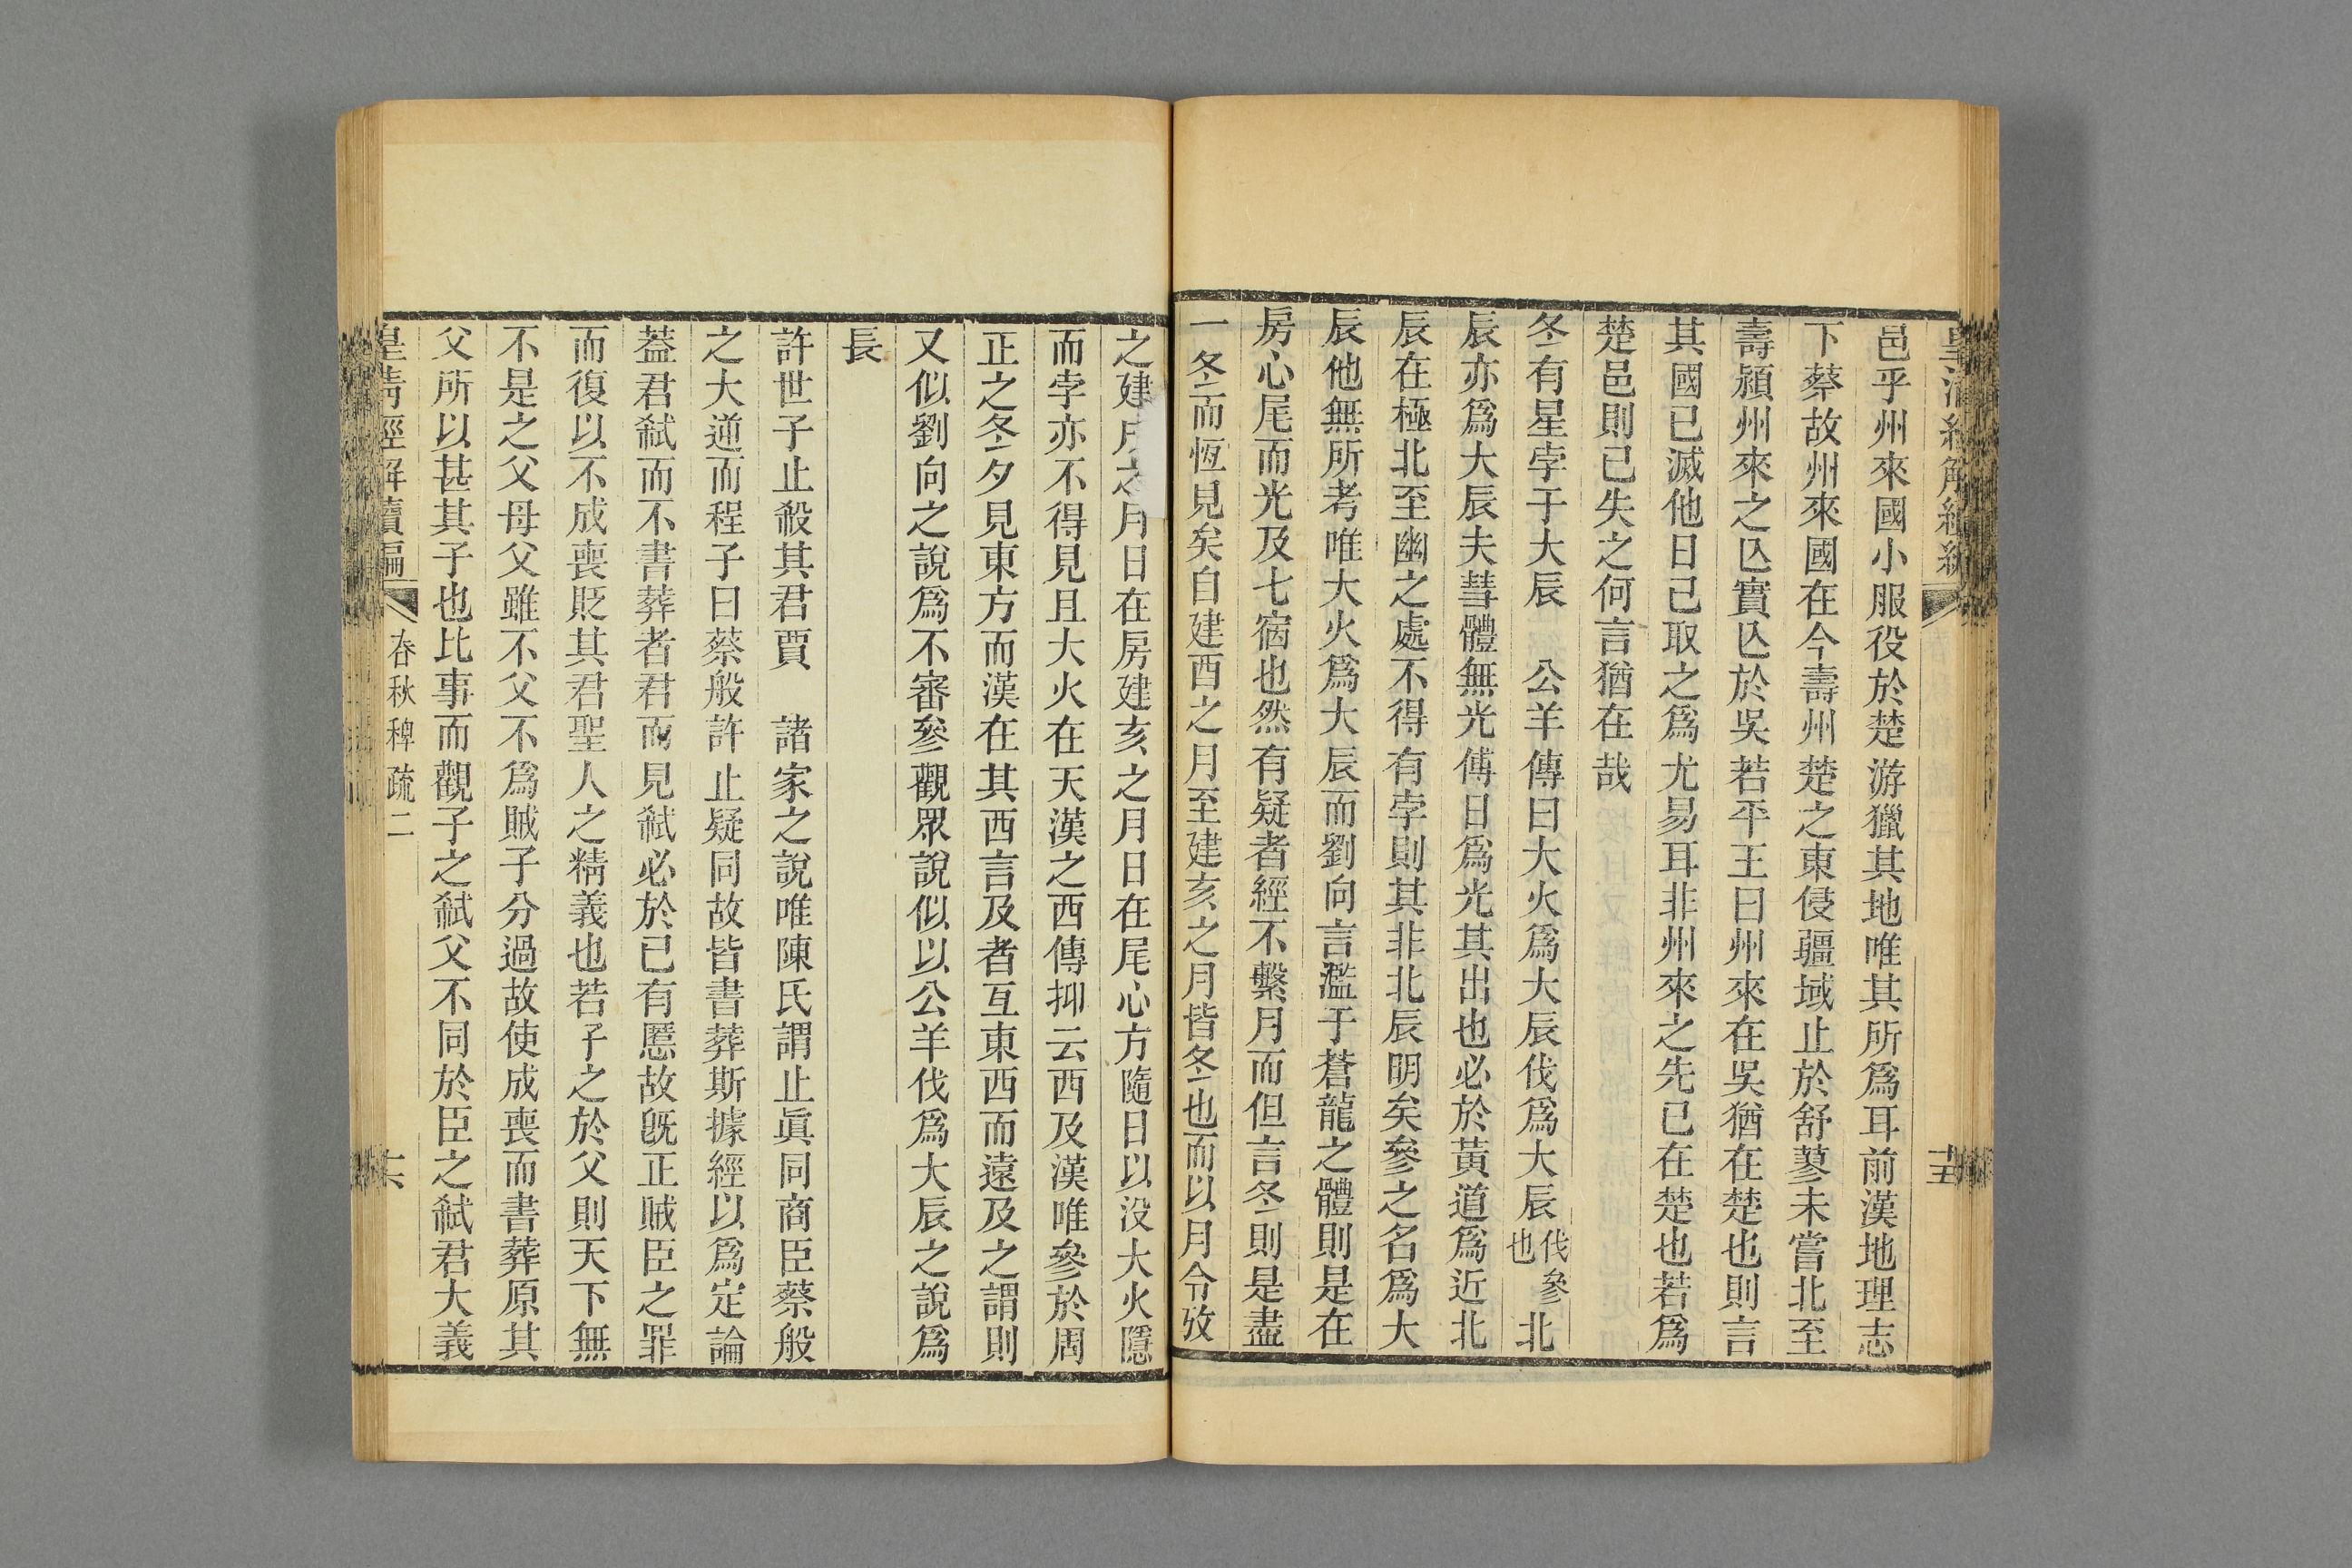 皇清經解續編
十五
邑乎州來國小服役於楚游獵其地唯其所爲耳前漢地理志
下蔡故州來國在今壽州楚之東侵疆域止於舒蓼未嘗北至
壽潁州來之亾實亾於吳若平王曰州來在吳猶在楚也則言
其國已滅他日己取之爲尤易耳非州來之先已在楚也若爲
楚邑則已失之何言猶在哉
冬有星孛于大辰　公羊傳曰大火爲大辰伐爲大辰伐參也北
辰亦爲大辰夫彗體無光傅日爲光其出也必於黃道爲近北
辰在極北至幽之處不得有孛則其非北辰明矣參之名爲大
辰他無所考唯大火爲大辰而劉向言濫于蒼龍之體則是在
房心尾而光及七宿也然有疑者經不繫月而但言冬則是盡
一冬而恆見矣自建酉之月至建亥之月皆冬也而以月令攷
之建之月日在房建亥之月日在尾心方隨日以没大火隱
而孛亦不得見且大火在天漢之西傳抑云西及漢唯參於周
正之冬夕見東方而漢在其西言及者互東西而遠及之謂則
又似劉向之說爲不審參觀眾說似以公羊伐爲大辰之說爲
長
許世子止殺其君買　諸家之說唯陳氏謂止眞同商臣蔡般
之大逆而程子曰蔡般許止疑同故皆書葬斯據經以爲定論
葢君弑而不書葬者君而見弑必於已有慝故旣正賊臣之罪
而復以不成喪貶其君聖人之精義也若子之於父則天下無
不是之父母父雖不父不爲賊子分過故使成喪而書葬原其
父所以甚其子也比事而觀子之弑父不同於臣之弑君大義
皇清經解續編
春秋稗疏二
十六